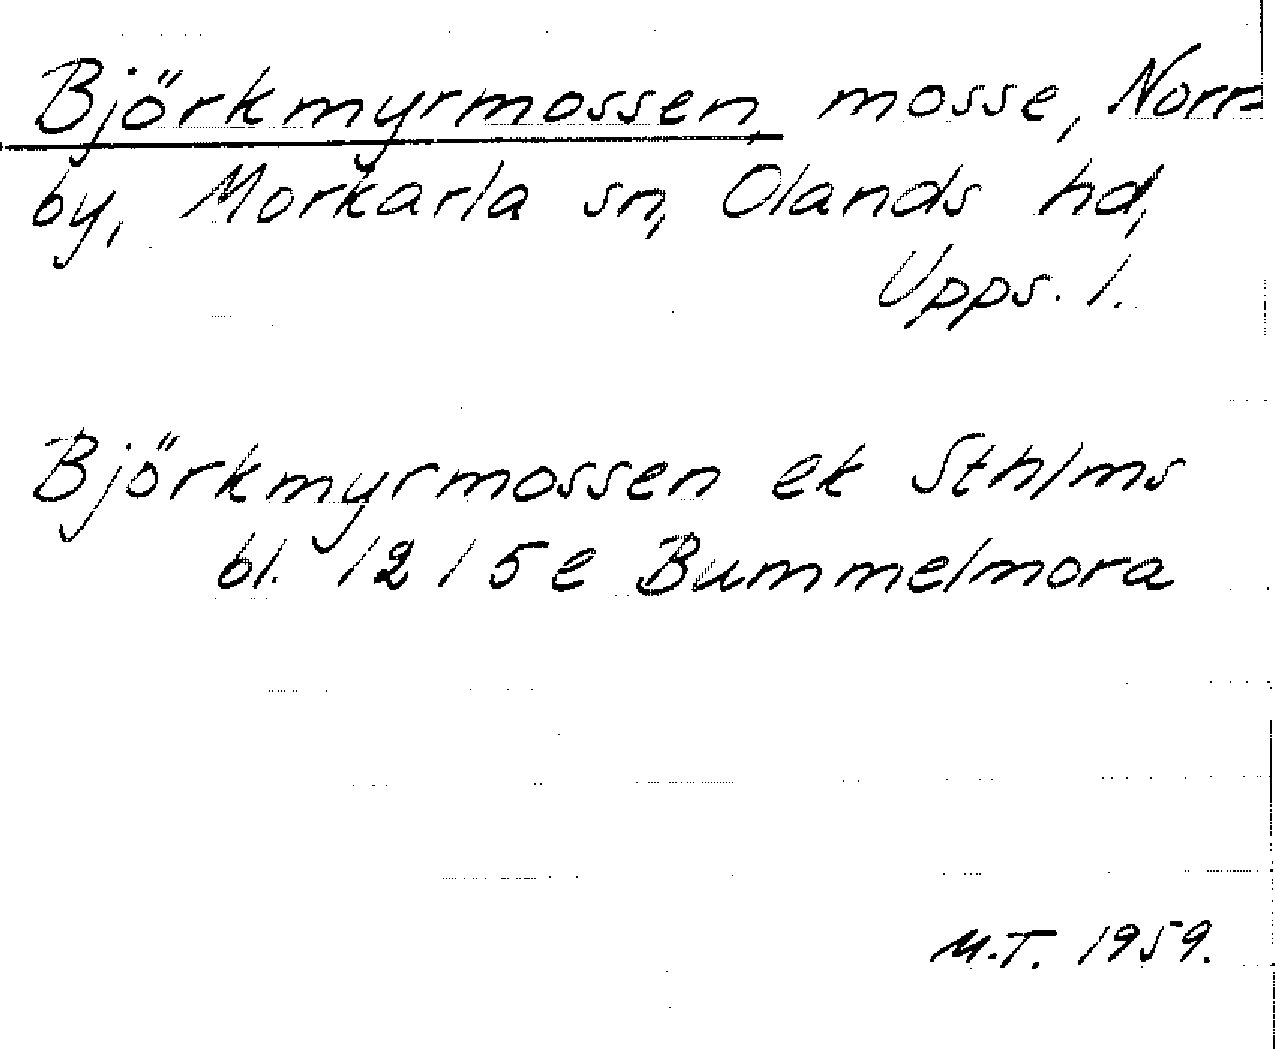 Björkmyrmossen, mosse, Norr-
by, Morkarla sn, Olands hd,
Upps. l.
Björkmyrmossen ek Sthlms
bl. 12 I 5e Bummelmora
M.T. 1959.